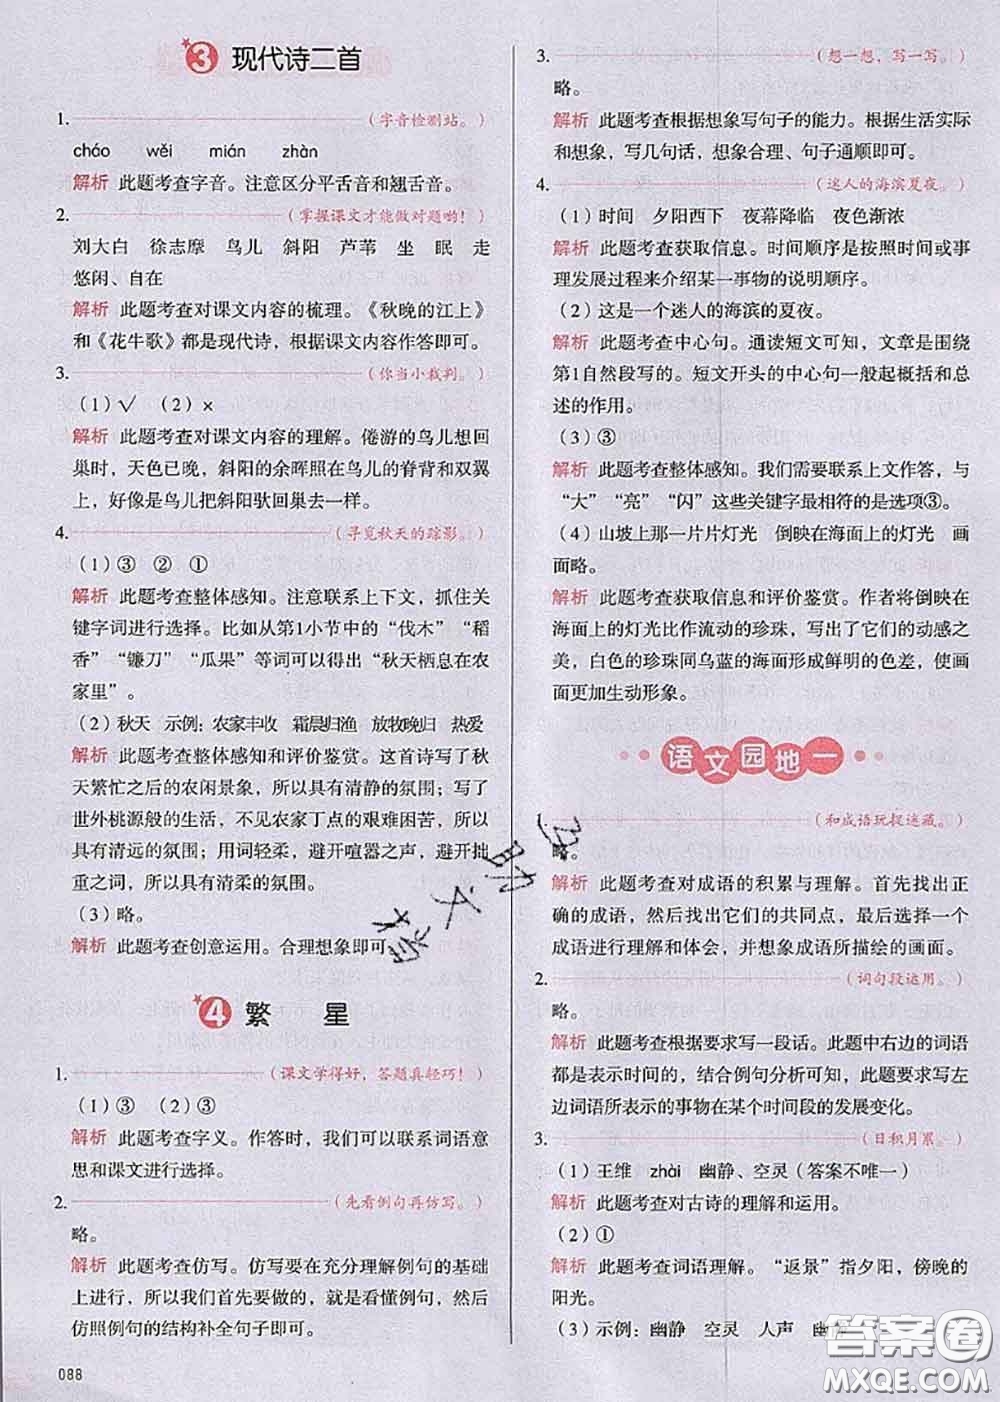 3 现代诗二首
1. （字音检测站。）
cháo wěi mián zhàn
解析 此题考查字音。注意区分平舌音和翘舌音。
2. （掌握课文才能做对题哟！）
刘大白 徐志摩 鸟儿 斜阳 芦苇 坐 眠 走
悠闲、自在
解析 此题考查对课文内容的梳理。《秋晚的江上》
和《花牛歌》都是现代诗，根据课文内容作答即可。
3. （你当小裁判。）
（1）√ （2）×
解析 此题考查对课文内容的理解。倦游的鸟儿想回
巢时，天色已晚，斜阳的余晖照在鸟儿的脊背和双翼
上，好像是鸟儿把斜阳驮回巢去一样。
4. （寻觅秋天的踪影。）
（1）③ ② ①
解析 此题考查整体感知。注意联系上下文，抓住关
键字词进行选择。比如从第1小节中的“伐木”“稻
香”“镰刀”“瓜果”等词可以得出“秋天栖息在农
家里”。
（2）秋天 示例：农家丰收 霜晨归渔 放牧晚归 热爱
解析 此题考查整体感知和评价鉴赏。这首诗写了秋
天繁忙之后的农闲景象，所以具有清静的氛围；写了
世外桃源般的生活，不见农家丁点的艰难困苦，所以
具有清远的氛围；用词轻柔，避开喧嚣之声，避开拙
重之词，所以具有清柔的氛围。
（3）略。
解析 此题考查创意运用。合理想象即可。
4 繁 星
1. （课文学得好，答题真轻巧！）
（1）③ （2）③
解析 此题考查字义。作答时，我们可以联系词语意
思和课文进行选择。
2. （先看例句再仿写。）
略。
解析 此题考查仿写。仿写要在充分理解例句的基础
上进行，所以我们首先要做的，就是看懂例句，然后
仿照例句的结构补全句子即可。
088
3. （想一想，写一写。）
略。
解析 此题考查根据想象写句子的能力。根据生活实际
和想象，写几句话，想象合理、句子通顺即可。
4. （迷人的海滨夏夜。）
（1）时间 夕阳西下 夜幕降临 夜色渐浓
解析 此题考查获取信息。时间顺序是按照时间或事
理发展过程来介绍某一事物的说明顺序。
（2）这是一个迷人的海滨的夏夜。
解析 此题考查中心句。通读短文可知，文章是围绕
第1自然段写的。短文开头的中心句一般起概括和总
述的作用。
（3）③
解析 此题考查整体感知。我们需要联系上文作答，与
“大”“亮”“闪”这些关键字最相符的是选项③。
（4）山坡上那一片片灯光 倒映在海面上的灯光 画
面略。
解析 此题考查获取信息和评价鉴赏。作者将倒映在
海面上的灯光比作流动的珍珠，写出了它们的动态之
美，白色的珍珠同乌蓝的海面形成鲜明的色差，使画
面更加生动形象。
语文园地一
1. （和成语玩捉迷藏。）
略。
解析 此题考查对成语的积累与理解。首先找出正
确的成语，然后找出它们的共同点，最后选择一个
成语进行理解和体会，并想象成语所描绘的画面。
2. （词句段运用。）
略。
解析 此题考查根据要求写一段话。此题中右边的词语
都是表示时间的，结合例句分析可知，此题要求写左
边词语所表示的事物在某个时间段的发展变化。
3. （日积月累。）
（1）王维 zhài 幽静、空灵（答案不唯一）
解析 此题考查对古诗的理解和运用。
（2）①
解析 此题考查词语理解。“返景”指夕阳，傍晚的
阳光。
（3）示例：幽静 空灵 人声 幽静
答案圈
MXQE.COM